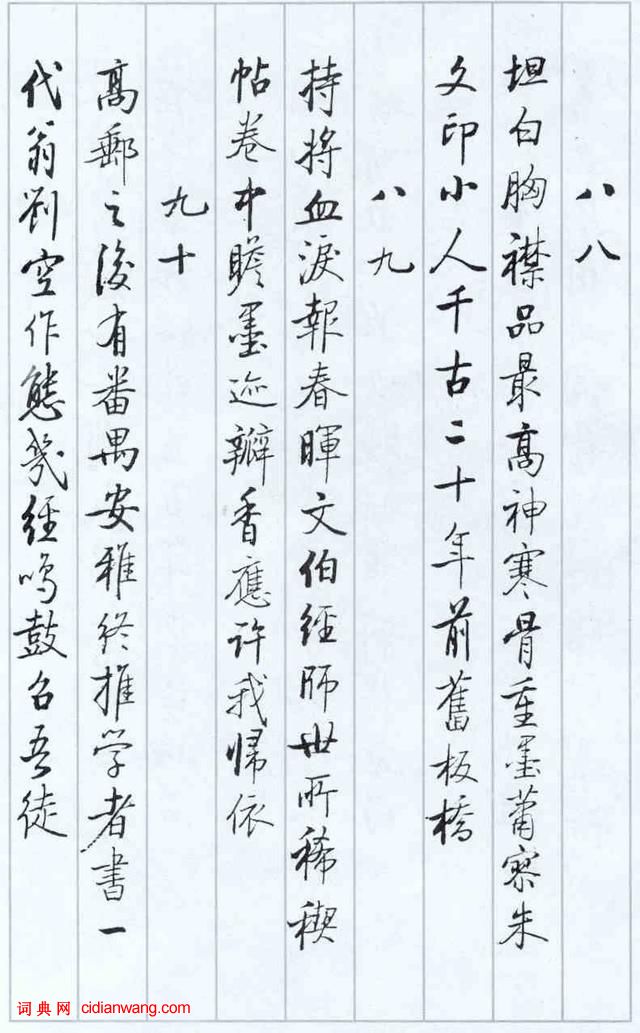 八八
坦白胸襟品最高神寒骨重墨蕭寥朱
文印小人千古二十年前舊板橋
八九
持將血淚報春暉文伯經師世所稀禊
帖卷中瞻墨迹瓣香應許我歸依
九十
高郵之後有番禺安雅終推学者書一
代翁劉空作態幾經鳴鼓召吾徒
词典网 cidianwang.com